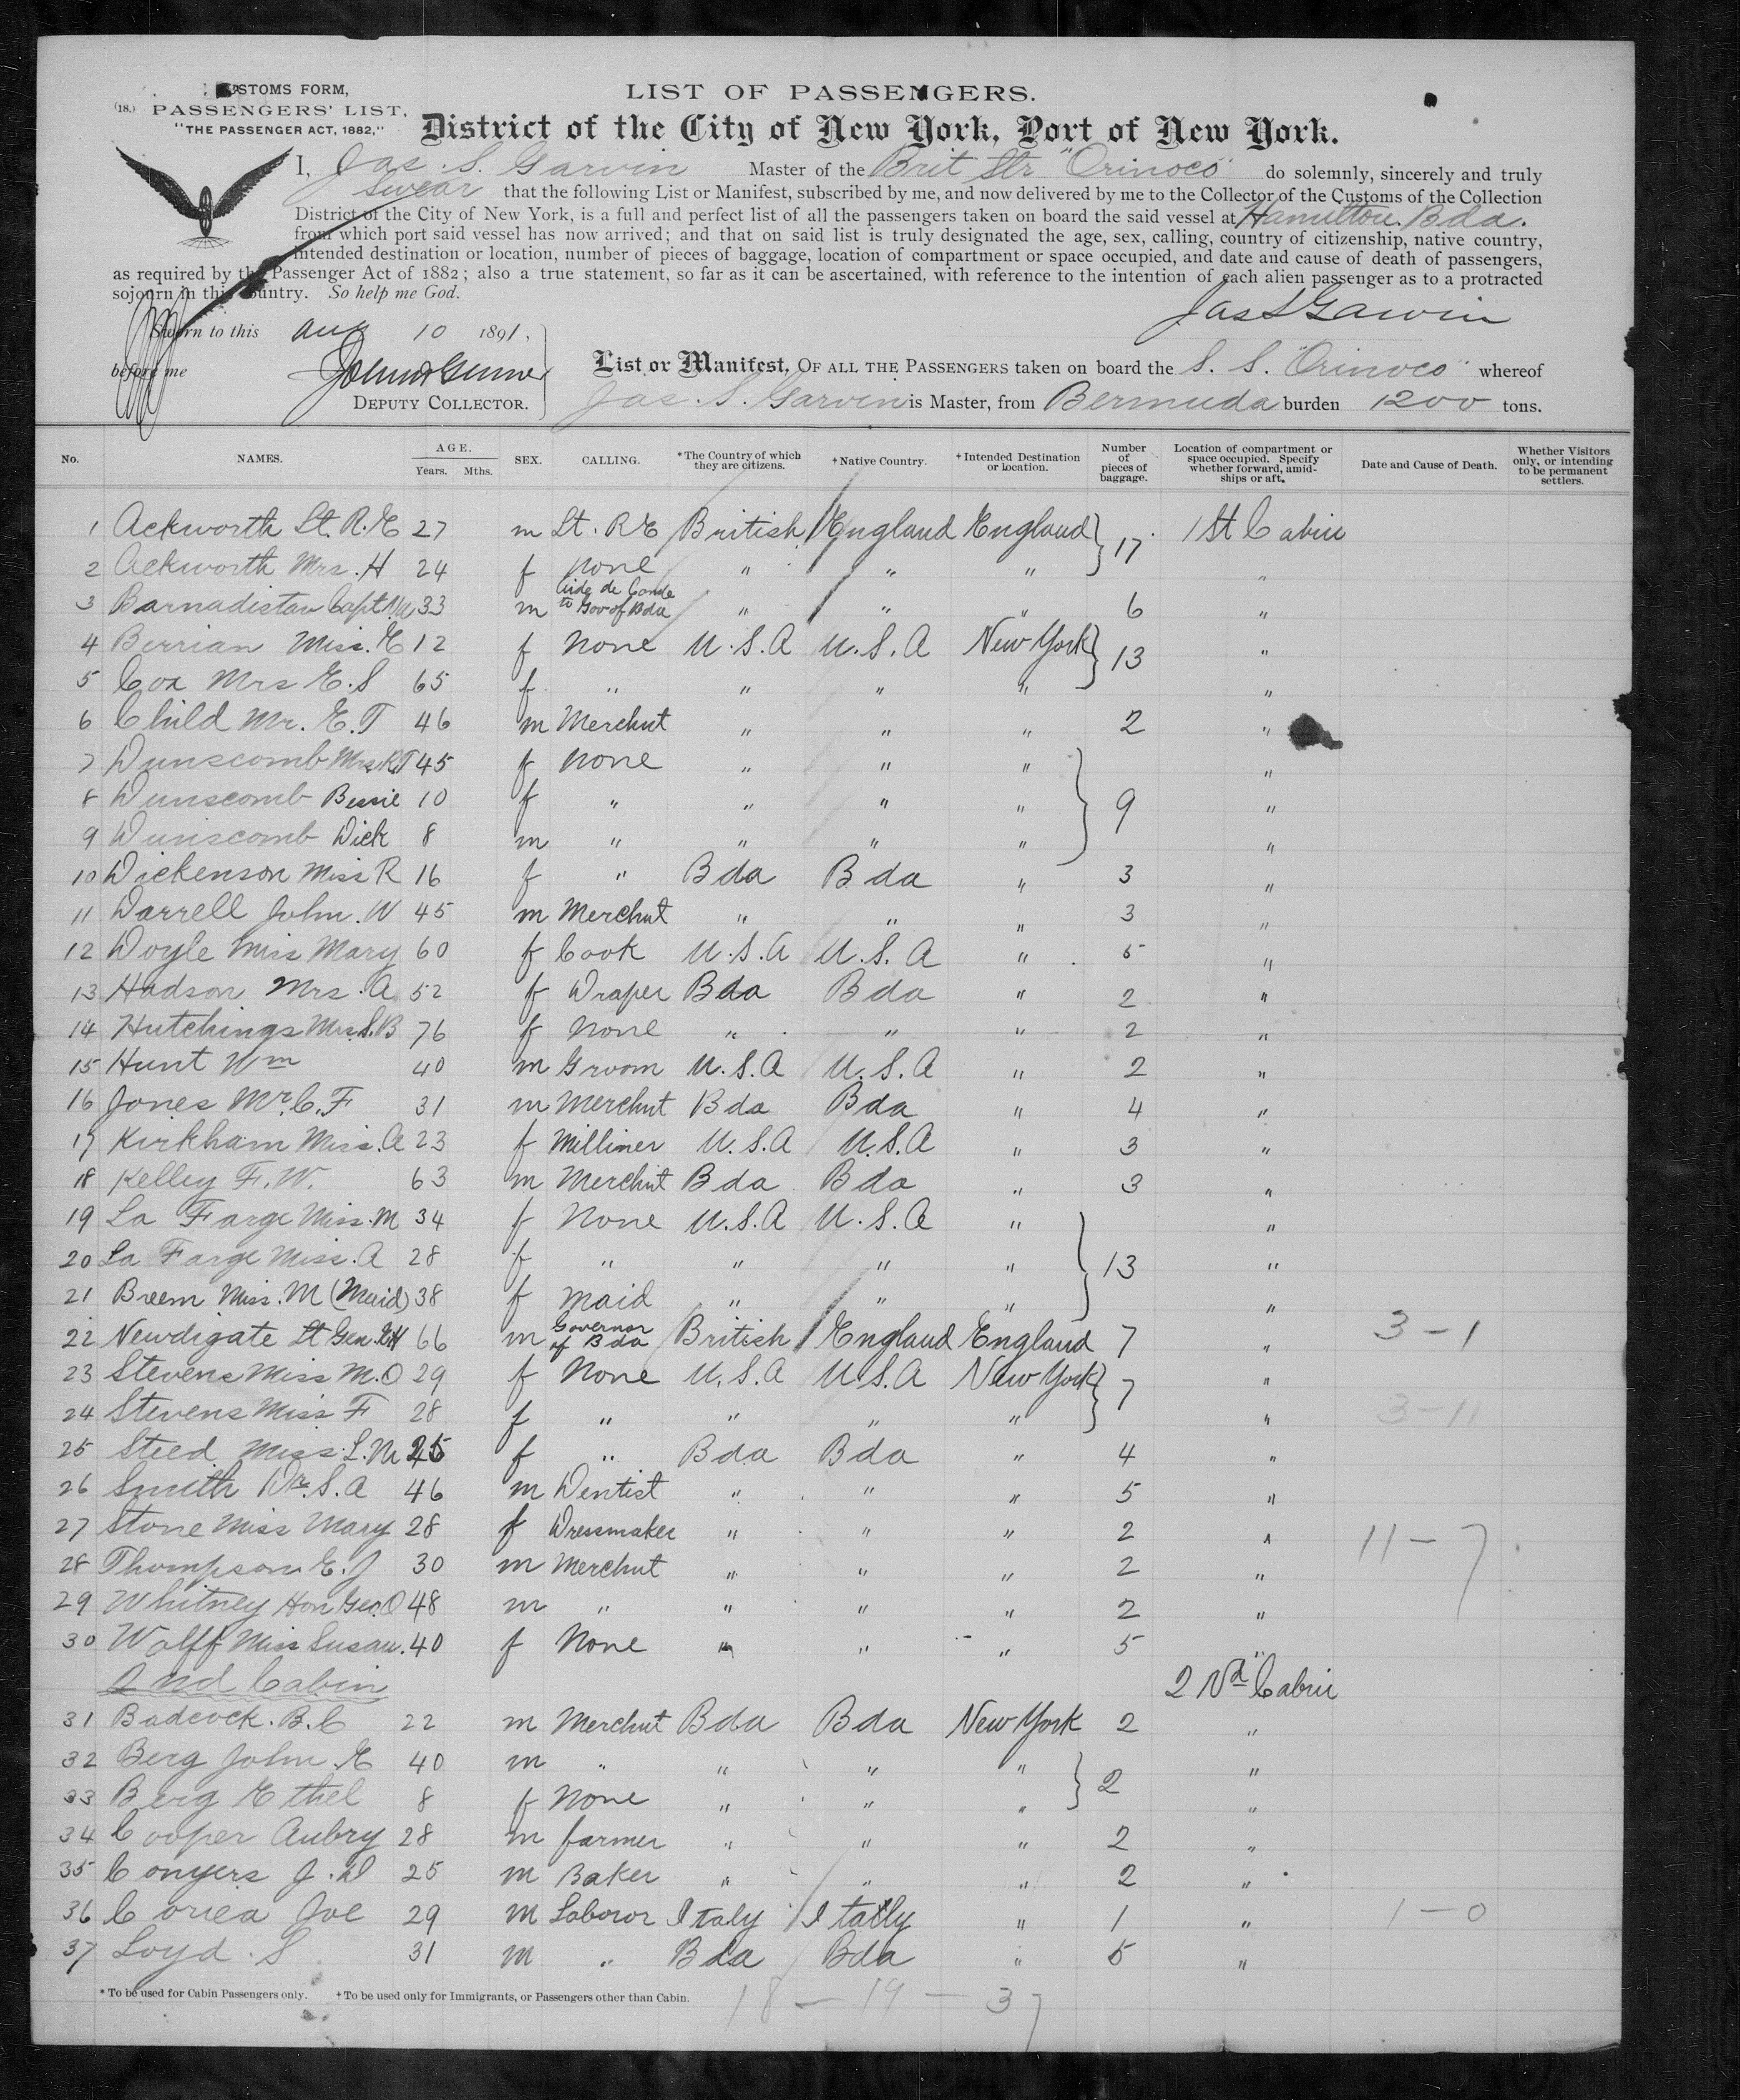 CUSTOMS FORM,
(18.) PASSENGERS' LIST,
"THE PASSENGER ACT, 1882,"
LIST OF PASSENGERS.
District of the City of New York, Port of New York.
I, Jas. S. Garvin Master of the Brit Str "Orinoco" do solemnly, sincerely and truly
swear that the following List or Manifest, subscribed by me, and now delivered by me to the Collector of the Customs of the Collection
District of the City of New York, is a full and perfect list of all the passengers taken on board the said vessel at Hamilton. Bda.
from which port said vessel has now arrived; and that on said list is truly designated the age, sex, calling, country of citizenship, native country,
intended destination or location, number of pieces of baggage, location of compartment or space occupied, and date and cause of death of passengers,
as required by the Passenger Act of 1882; also a true statement, so far as it can be ascertained, with reference to the intention of each alien passenger as to a protracted
sojourn in this country. So help me God.
Jas S Garvin
Sworn to this Aug 10 1891,
before me
DEPUTY COLLECTOR.
List or Manifest, OF ALL THE PASSENGERS taken on board the S. S. "Orinoco" whereof
Jas. S. Garvin is Master, from Bermuda burden 1200 tons.
No. NAMES. AGE. Years. Mths. SEX. CALLING. *The Country of which they are citizens. †Native Country. †Intended Destination or location. Number of pieces of baggage. Location of compartment or space occupied. Specify whether forward, amidships or aft. Date and Cause of Death. Whether Visitors only, or intending to be permanent settlers.
1 Ackworth Lt. R.E 27 m Lt. R E British England England } 17 1st Cabin
2 Ackworth Mrs. H 24 f none " " " "
3 Barnadistan Capt N 33 m Aide de Camde to Gov of Bda " " " 6 "
4 Berrian Miss. E 12 f None U.S.A U.S.A New York } 13 "
5 Cox Mrs E.S 65 f " " " " "
6 Child Mr. E.T 46 m Merchnt " " " 2 "
7 Dunscomb Mrs R.T 45 f None " " " "
8 Dunscomb Bessie 10 f " " " " } 9 "
9 Dunscomb Dick 8 m " " " " "
10 Dickenson Miss R 16 f " Bda Bda " 3 "
11 Darrell John. W 45 m Merchnt " " " 3 "
12 Doyle Miss Mary 60 f Cook U.S.A U.S.A " 5 "
13 Hadson Mrs. A 52 f Draper Bda Bda " 2 "
14 Hutchings Mrs. S.B 76 f None " " " 2 "
15 Hunt Wm 40 m Groom U.S.A U.S.A " 2 "
16 Jones Mr. C.F 31 m Merchnt Bda Bda " 4 "
17 Kirkham Miss. A 23 f Milliner U.S.A U.S.A " 3 "
18 Kelley F.W. 63 m Merchnt Bda Bda " 3 "
19 La Farge Miss. M 34 f None U.S.A U.S.A " "
20 La Farge Miss. A 28 f " " " " } 13 "
21 Breem Miss. M (Maid) 38 f maid " " " "
22 Newdigate Lt Gen. E.H 66 m Governor of Bda British England England 7 " 3 - 1
23 Stevens Miss M.O 29 f None U.S.A U.S.A New York } 7 "
24 Stevens Miss F 28 f " " " " " 3 - 11
25 Steed Miss. L.M f " Bda Bda " 4 "
26 Smith Dr. S.A 46 m Dentist " " " 5 "
27 Stone Miss Mary 28 f Dressmaker " " " 2 " 11 - 7
28 Thompson E.J 30 m Merchnt " " " 2 "
29 Whitney Hon Geo. O 48 m " " " " 2 "
30 Wolff Miss Susan. 40 f None " " " 5 "
2nd Cabin 2nd Cabin
31 Badcock. B.C 22 m Merchnt Bda Bda New York 2 "
32 Berg John. E 40 m " " " " } 2 "
33 Berg Ethel 8 f None " " " "
34 Cooper Aubry 28 m farmer " " " 2 "
35 Conyers J.D 25 m Baker " " " 2 "
36 Coriea Joe 29 m Laboror Italy Itally " 1 " 1 - 0
37 Loyd. S 31 m " Bda Bda " 5 "
* To be used for Cabin Passengers only. † To be used only for Immigrants, or Passengers other than Cabin.
18 - 19 - 37